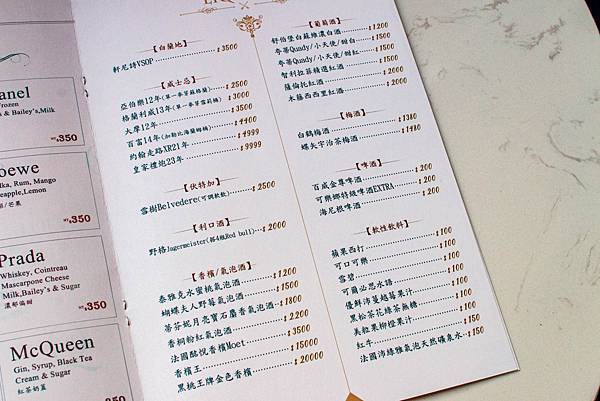 anel
Frozen
& Bailey's,Milk
NT.350
oewe
ka, Rum, Mango
eapple,Lemon
NT.350
Prada
Whiskey, Cointreau
Mascarpone Cheese
Milk,Bailey's & Sugar
濃郁偏甜
NT.350
McQueen
Gin, Syrup, Black Tea
Cream & Sugar
紅茶奶蓋
【白蘭地】
軒尼詩VSOP $3500
【威士忌】
亞伯樂12年(單一麥芽蘇格蘭) $2500
格蘭利威13年(單一麥芽雪莉桶) $3000
大摩12年 $3500
百富14年(加勒比海蘭姆桶) $4400
約翰走路XR21年 $4999
皇家禮炮23年 $9999
【伏特加】
雪樹Belvedere(可調軟飲) $2500
【利口酒】
野格Jagermeister(路4瓶Red bull) $2000
【香檳/氣泡酒】
泰雅克水蜜桃氣泡酒 $1200
蝴蝶夫人野莓氣泡酒 $1500
蒂芬妮月亮寶石麝香氣泡酒 $1800
香桐粉紅氣泡酒 $2200
法國酩悅香檳Moet $3500
香檳王 $15000
黑桃王牌金色香檳 $20000
【葡萄酒】
舒伯堡白蘇維濃白酒 $1200
夸蒂Quady/小天使/甜白 $1500
夸蒂Quady/小天使/甜紅 $1500
智利拉菲精選紅酒 $1500
薩倫托紅酒 $2000
木藤西西里紅酒 $2000
【梅酒】
白鶴梅酒 $1380
蝶矢宇治茶梅酒 $1480
【啤酒】
百威金尊啤酒 $200
可樂娜特級啤酒EXTRA $200
海尼根啤酒 $200
【軟性飲料】
蘋果西打 $100
可口可樂 $100
雪碧 $100
可爾必思水語 $100
優鮮沛蔓越莓果汁 $100
黑松茶花綠茶無糖 $100
美粒果柳橙果汁 $100
紅牛 $150
法國沛綠雅氣泡天然礦泉水 $150